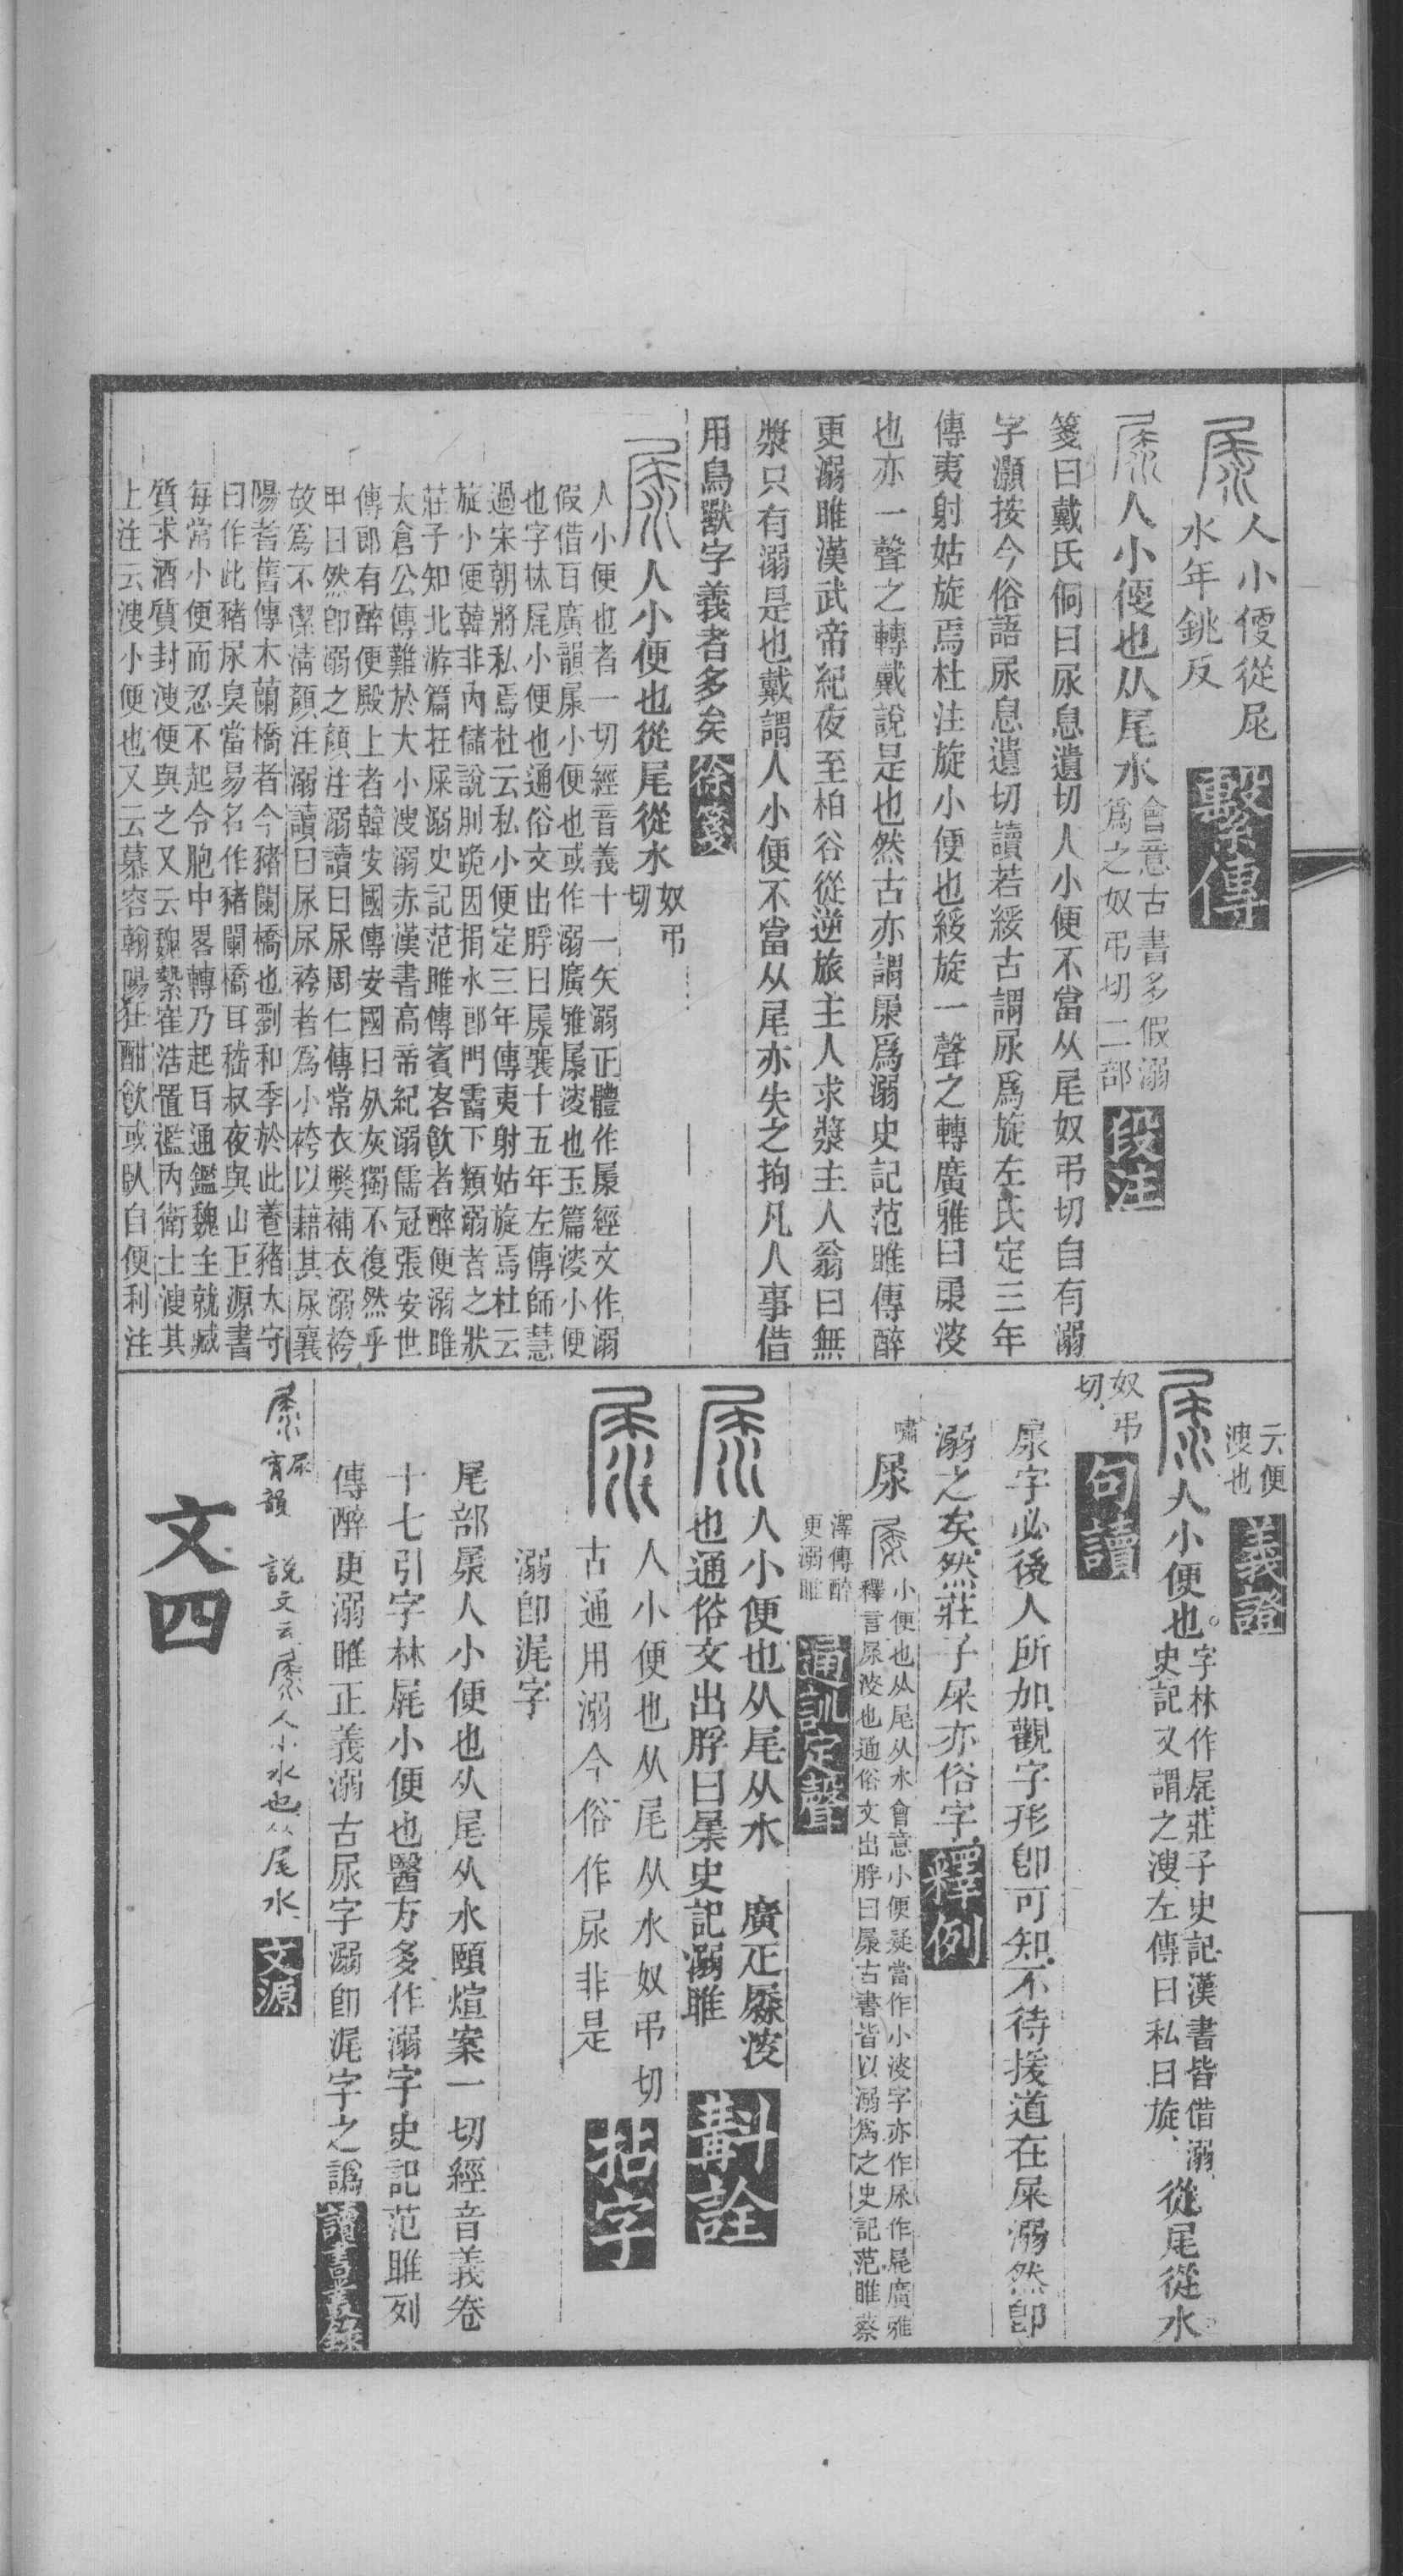 人小㑹從尾
水年銚反
繫傳
人小便也从尾水
會意古書多假溺
爲之奴弔切二部
段注
箋曰戴氏侗曰尿息遺切人小便不當从尾奴弔切自有溺
字灝按今俗語尿息遺切讀若綏古謂尿爲旋左氏定三年
傳夷射姑旋焉杜注旋小便也綏旋一聲之轉廣雅曰㞙㳮
也亦一聲之轉戴說是也然古亦謂㞙爲溺史記范雎傳醉
更溺雎漢武帝紀夜至柏谷從逆旅主人求漿主人翁曰無
漿只有溺是也戴謂人小便不當从尾亦失之拘凡人事借
用鳥獸字義者多矣
徐箋
人小便也從尾從水
奴弔
切
人小便也者一切經音義十一矢溺正體作㞙經文作溺
假借耳廣韻㞙小便也或作溺廣雅㞙㳮也玉篇㳮小便
也字林尾小便也通俗文出脬曰㞙襄十五年左傳師慧
過宋朝將私焉杜云私小便定三年傳夷射姑旋焉杜云
旋小便韓非內儲說刖跪因捐水郎門霤下類溺者之狀
莊子知北游篇在屎溺史記范雎傳賓客飮者醉便溺雎
太倉公傳難於大小溲溺赤漢書高帝紀溺儒冠張安世
傳郎有醉便殿上者韓安國傳安國曰死灰獨不復然乎
甲曰然卽溺之顔注溺讀曰尿周仁傳常衣獘補衣溺袴
故爲不潔淸顔注溺讀曰尿尿袴者爲小袴以藉其尿襄
陽耆舊傳木蘭橋者今豬闌橋也劉和季於此養豬太守
曰作此豬尿臭當易名作豬闌橋耳嵇叔夜與山巨源書
每常小便而忍不起令胞中畧轉乃起耳通鑑魏主就臧
質求酒質封溲便與之又云魏縶崔浩置檻內衛士溲其
上注云溲小便也又云慕容翰陽狂酣飮或臥自便利注
云便
溲也
義證
人小便也。
字林作屍莊子史記漢書皆借溺、
史記又謂之溲、左傳曰私曰旋、
從尾從水。
奴弔
切、
句讀
尿字必後人所加觀字形卽可知、不待援道在屎溺然卽
溺之矣、然莊子屎亦俗字、
釋例
嘯
尿
小便也从尾从水會意小便疑當作小㳮字亦作尿作屍廣雅
釋言尿㳮也通俗文出脬曰㞙古書皆以溺爲之史記范雎蔡
澤傳醉
更溺雎
通訓定聲
人小便也从尾从水 廣疋㞙㳮
也通俗文出脬曰㞙史記溺雎
斠詮
人小便也从尾从水奴弔切
古通用溺今俗作尿非是
拈字
溺卽浘字
尾部㞙人小便也从尾从水頤煊案一切經音義卷
十七引字林屍小便也醫方多作溺字史記范雎列
傳醉更溺雎正義溺古尿字溺卽浘字之譌
讀書叢錄
尿
宵韻
說文云 人小水也从尾水、
文源
文四